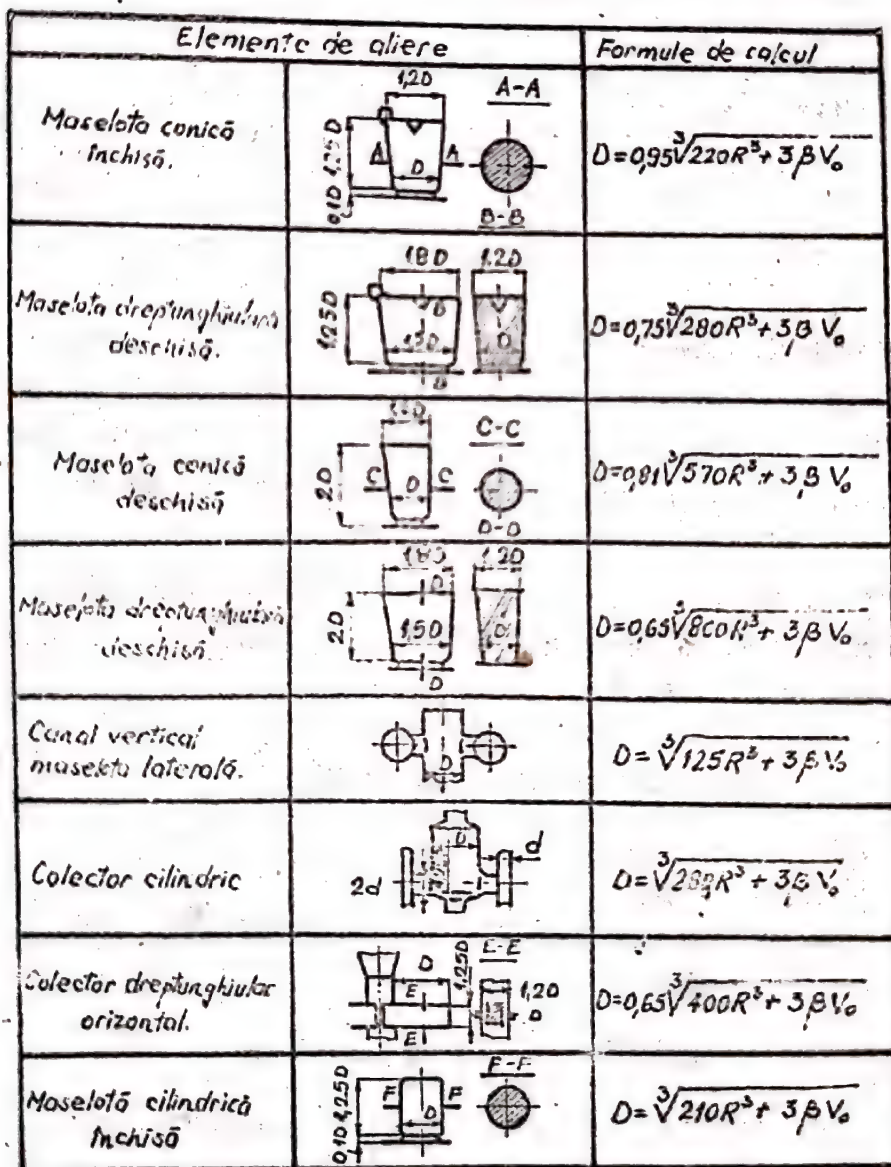 Elemente de aliere
Formule de calcul
Maselota conică
închisă.
1,2D
A-A
1,25D
0,1D
A
A
D
B-B
D=0,95∛220R³+3βV₀
Maselota dreptunghiulară
deschisă.
1,8D
1,2D
1,25D
B
1,5D
D
B
D=0,75∛280R³+3βV₀
Maselota conică
deschisă
C-C
2D
C
D
C
D-D
D=0,81∛570R³+3βV₀
Maselota dreptunghiulară
deschisă
1,8D
1,2D
D
2D
1,5D
D
D
D=0,65∛800R³+3βV₀
Canal vertical
maselota laterală.
D
D=∛125R³+3βV₀
Colector cilindric
D
d
2d
D=∛R³+3βV₀
Colector dreptunghiular
orizontal.
D
1,25D
E-E
E
1,2D
D
E
D=0,65∛400R³+3βV₀
Maselotă cilindrică
închisă
F-F
1,25D
0,1D
F
F
D
D=∛210R³+3βV₀